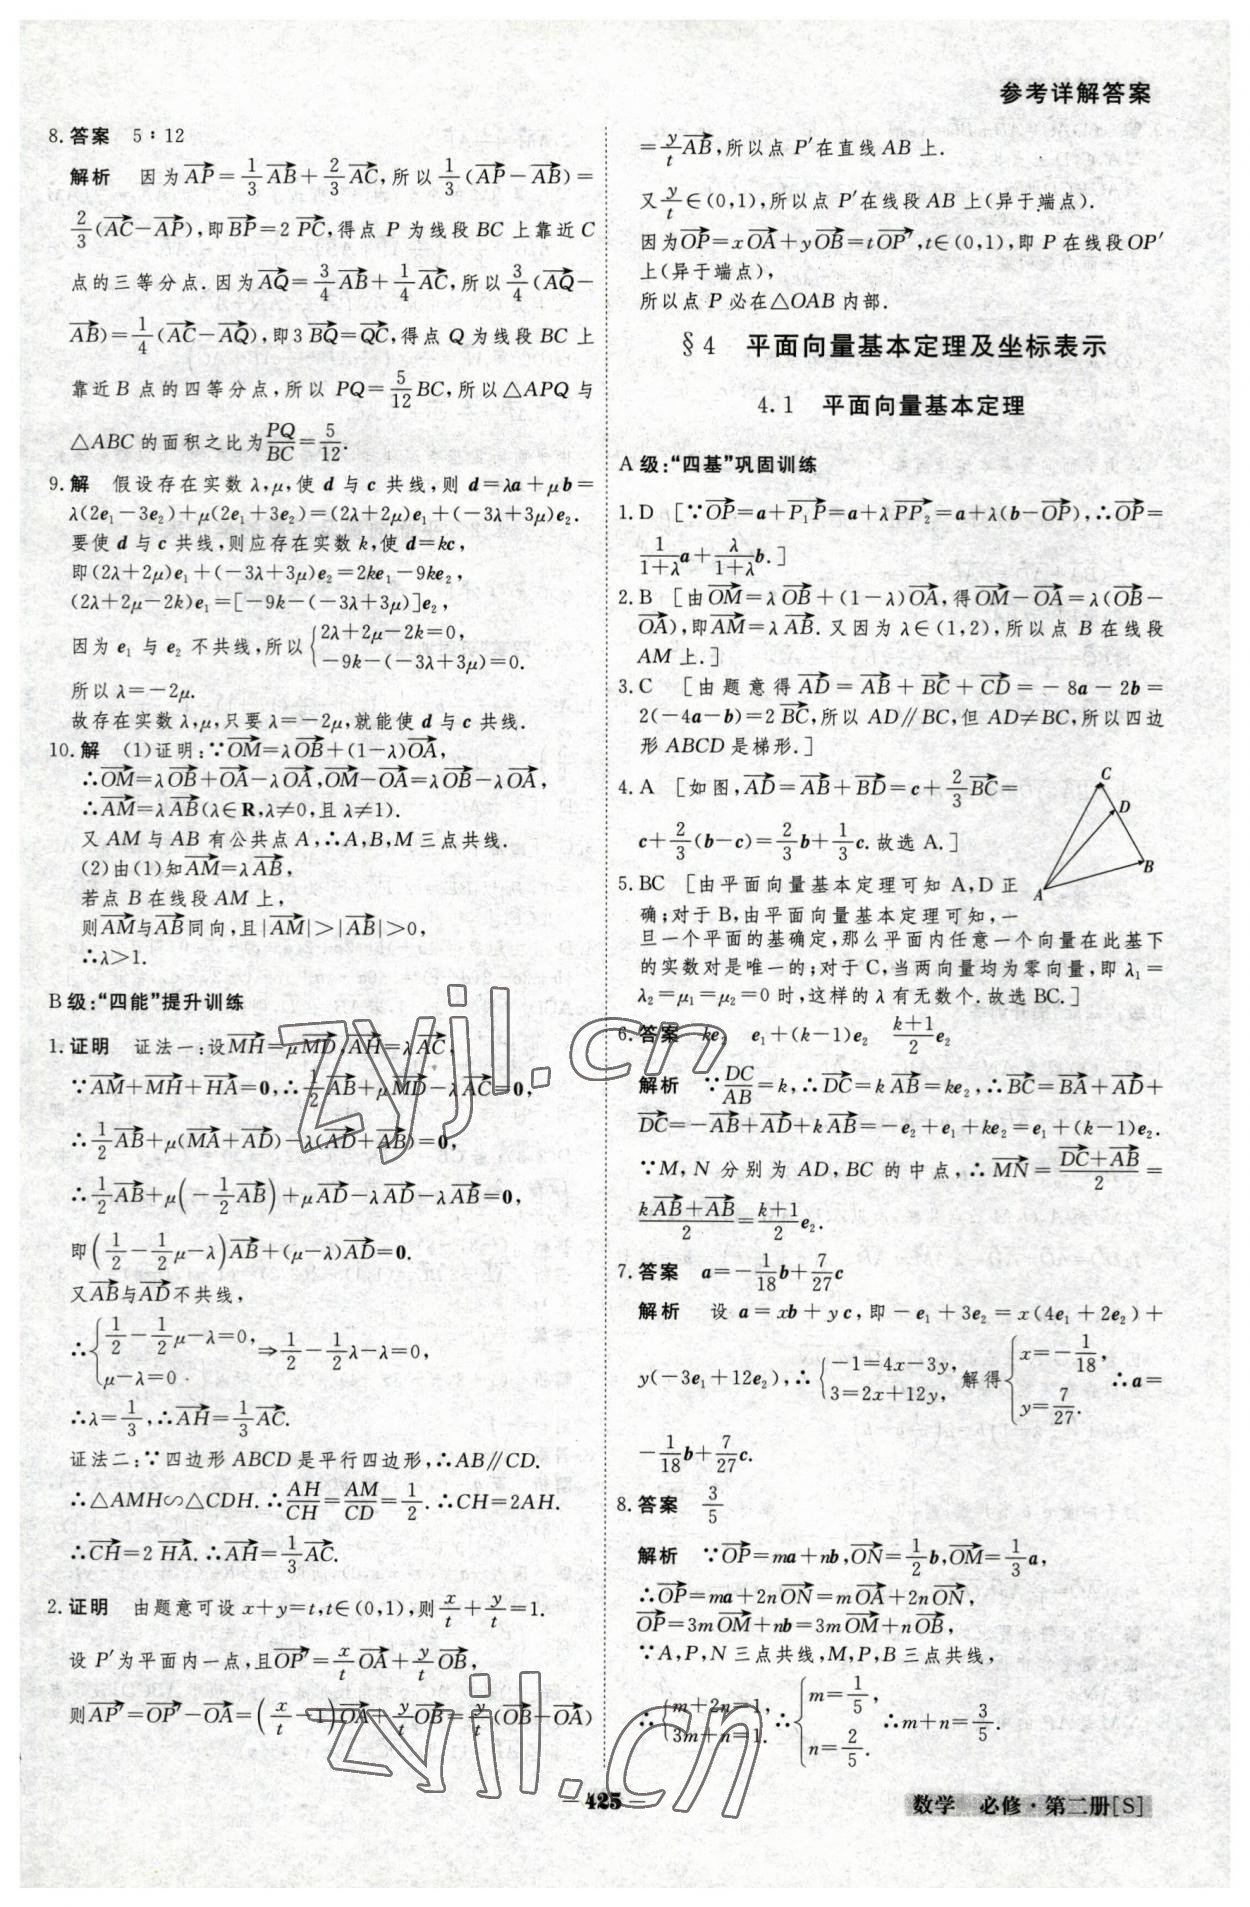 参考详解答案
8. 答案　5∶12
解析　因为$\overrightarrow{AP}=\frac{1}{3}\overrightarrow{AB}+\frac{2}{3}\overrightarrow{AC}$,所以$\frac{1}{3}(\overrightarrow{AP}-\overrightarrow{AB})=$
$\frac{2}{3}(\overrightarrow{AC}-\overrightarrow{AP})$,即$\overrightarrow{BP}=2\overrightarrow{PC}$,得点 P 为线段 BC 上靠近 C
点的三等分点.因为$\overrightarrow{AQ}=\frac{3}{4}\overrightarrow{AB}+\frac{1}{4}\overrightarrow{AC}$,所以$\frac{3}{4}(\overrightarrow{AQ}-$
$\overrightarrow{AB})=\frac{1}{4}(\overrightarrow{AC}-\overrightarrow{AQ})$,即$3\overrightarrow{BQ}=\overrightarrow{QC}$,得点 Q 为线段 BC 上
靠近 B 点的四等分点,所以 $PQ=\frac{5}{12}BC$,所以△APQ 与
△ABC 的面积之比为$\frac{PQ}{BC}=\frac{5}{12}$.
9. 解　假设存在实数 λ,μ,使 d 与 c 共线,则 d=λa+μb=
λ(2e₁-3e₂)+μ(2e₁+3e₂)=(2λ+2μ)e₁+(-3λ+3μ)e₂.
要使 d 与 c 共线,则应存在实数 k,使 d=kc,
即(2λ+2μ)e₁+(-3λ+3μ)e₂=2ke₁-9ke₂,
(2λ+2μ-2k)e₁=[-9k-(-3λ+3μ)]e₂,
因为 e₁ 与 e₂ 不共线,所以$\begin{cases}2λ+2μ-2k=0,\\-9k-(-3λ+3μ)=0.\end{cases}$
所以 λ=-2μ.
故存在实数 λ,μ,只要 λ=-2μ,就能使 d 与 c 共线.
10. 解　(1)证明:∵$\overrightarrow{OM}=λ\overrightarrow{OB}+(1-λ)\overrightarrow{OA}$,
∴$\overrightarrow{OM}=λ\overrightarrow{OB}+\overrightarrow{OA}-λ\overrightarrow{OA},\overrightarrow{OM}-\overrightarrow{OA}=λ\overrightarrow{OB}-λ\overrightarrow{OA}$,
∴$\overrightarrow{AM}=λ\overrightarrow{AB}$(λ∈R,λ≠0,且 λ≠1).
又 AM 与 AB 有公共点 A,∴A,B,M 三点共线.
(2)由(1)知$\overrightarrow{AM}=λ\overrightarrow{AB}$,
若点 B 在线段 AM 上,
则$\overrightarrow{AM}$与$\overrightarrow{AB}$同向,且$|\overrightarrow{AM}|>|\overrightarrow{AB}|>0$,
∴λ>1.
B 级:“四能”提升训练
1. 证明　证法一:设$\overrightarrow{MH}=μ\overrightarrow{MD},\overrightarrow{AH}=λ\overrightarrow{AC}$,
∵$\overrightarrow{AM}+\overrightarrow{MH}+\overrightarrow{HA}=0$,∴$\frac{1}{2}\overrightarrow{AB}+μ\overrightarrow{MD}-λ\overrightarrow{AC}=0$,
∴$\frac{1}{2}\overrightarrow{AB}+μ(\overrightarrow{MA}+\overrightarrow{AD})-λ(\overrightarrow{AD}+\overrightarrow{AB})=0$,
∴$\frac{1}{2}\overrightarrow{AB}+μ\left(-\frac{1}{2}\overrightarrow{AB}\right)+μ\overrightarrow{AD}-λ\overrightarrow{AD}-λ\overrightarrow{AB}=0$,
即$\left(\frac{1}{2}-\frac{1}{2}μ-λ\right)\overrightarrow{AB}+(μ-λ)\overrightarrow{AD}=0$.
又$\overrightarrow{AB}$与$\overrightarrow{AD}$不共线,
∴$\begin{cases}\frac{1}{2}-\frac{1}{2}μ-λ=0,\\μ-λ=0\end{cases}⇒\frac{1}{2}-\frac{1}{2}λ-λ=0$,
∴$λ=\frac{1}{3}$,∴$\overrightarrow{AH}=\frac{1}{3}\overrightarrow{AC}$.
证法二:∵四边形 ABCD 是平行四边形,∴AB∥CD.
∴△AMH∽△CDH.∴$\frac{AH}{CH}=\frac{AM}{CD}=\frac{1}{2}$.∴CH=2AH.
∴$\overrightarrow{CH}=2\overrightarrow{HA}$.∴$\overrightarrow{AH}=\frac{1}{3}\overrightarrow{AC}$.
2. 证明　由题意可设 x+y=t,t∈(0,1),则$\frac{x}{t}+\frac{y}{t}=1$.
设 P′为平面内一点,且$\overrightarrow{OP′}=\frac{x}{t}\overrightarrow{OA}+\frac{y}{t}\overrightarrow{OB}$,
则$\overrightarrow{AP′}=\overrightarrow{OP′}-\overrightarrow{OA}=\left(\frac{x}{t}-1\right)\overrightarrow{OA}+\frac{y}{t}\overrightarrow{OB}=\frac{y}{t}(\overrightarrow{OB}-\overrightarrow{OA})$
$=\frac{y}{t}\overrightarrow{AB}$,所以点 P′在直线 AB 上.
又$\frac{y}{t}$∈(0,1),所以点 P′在线段 AB 上(异于端点).
因为$\overrightarrow{OP}=x\overrightarrow{OA}+y\overrightarrow{OB}=t\overrightarrow{OP′}$,t∈(0,1),即 P 在线段OP′
上(异于端点),
所以点 P 必在△OAB 内部.
§4　平面向量基本定理及坐标表示
4.1　平面向量基本定理
A 级:“四基”巩固训练
1. D　[∵$\overrightarrow{OP}=a+\overrightarrow{P_1P}=a+λ\overrightarrow{PP_2}=a+λ(b-\overrightarrow{OP})$,∴$\overrightarrow{OP}=$
$\frac{1}{1+λ}a+\frac{λ}{1+λ}b$.]
2. B　[由$\overrightarrow{OM}=λ\overrightarrow{OB}+(1-λ)\overrightarrow{OA}$,得$\overrightarrow{OM}-\overrightarrow{OA}=λ(\overrightarrow{OB}-$
$\overrightarrow{OA})$,即$\overrightarrow{AM}=λ\overrightarrow{AB}$.又因为 λ∈(1,2),所以点 B 在线段
AM 上.]
3. C　[由题意得$\overrightarrow{AD}=\overrightarrow{AB}+\overrightarrow{BC}+\overrightarrow{CD}=-8a-2b=$
$2(-4a-b)=2\overrightarrow{BC}$,所以 AD∥BC,但 AD≠BC,所以四边
形 ABCD 是梯形.]
4. A　[如图,$\overrightarrow{AD}=\overrightarrow{AB}+\overrightarrow{BD}=c+\frac{2}{3}\overrightarrow{BC}=$
$c+\frac{2}{3}(b-c)=\frac{2}{3}b+\frac{1}{3}c$.故选 A.]
C
D
B
A
5. BC　[由平面向量基本定理可知 A,D 正
确;对于 B,由平面向量基本定理可知,一
旦一个平面的基确定,那么平面内任意一个向量在此基下
的实数对是唯一的;对于 C,当两向量均为零向量,即 λ₁=
λ₂=μ₁=μ₂=0 时,这样的 λ 有无数个.故选 BC.]
6. 答案　ke₂　e₁+(k-1)e₂　$\frac{k+1}{2}e_2$
解析　∵$\frac{DC}{AB}=k$,∴$\overrightarrow{DC}=k\overrightarrow{AB}=ke_2$,∴$\overrightarrow{BC}=\overrightarrow{BA}+\overrightarrow{AD}+$
$\overrightarrow{DC}=-\overrightarrow{AB}+\overrightarrow{AD}+k\overrightarrow{AB}=-e_2+e_1+ke_2=e_1+(k-1)e_2$.
∵M,N 分别为 AD,BC 的中点,∴$\overrightarrow{MN}=\frac{\overrightarrow{DC}+\overrightarrow{AB}}{2}=$
$\frac{k\overrightarrow{AB}+\overrightarrow{AB}}{2}=\frac{k+1}{2}e_2$.
7. 答案　$a=-\frac{1}{18}b+\frac{7}{27}c$
解析　设 a=xb+yc,即-e₁+3e₂=x(4e₁+2e₂)+
y(-3e₁+12e₂),∴$\begin{cases}-1=4x-3y,\\3=2x+12y,\end{cases}$解得$\begin{cases}x=-\frac{1}{18},\\y=\frac{7}{27}.\end{cases}$∴a=
$-\frac{1}{18}b+\frac{7}{27}c$.
8. 答案　$\frac{3}{5}$
解析　∵$\overrightarrow{OP}=ma+nb,\overrightarrow{ON}=\frac{1}{2}b,\overrightarrow{OM}=\frac{1}{3}a$,
∴$\overrightarrow{OP}=ma+2n\overrightarrow{ON}=m\overrightarrow{OA}+2n\overrightarrow{ON}$,
$\overrightarrow{OP}=3m\overrightarrow{OM}+nb=3m\overrightarrow{OM}+n\overrightarrow{OB}$,
∵A,P,N 三点共线,M,P,B 三点共线,
∴$\begin{cases}m+2n=1,\\3m+n=1.\end{cases}$∴$\begin{cases}m=\frac{1}{5},\\n=\frac{2}{5}.\end{cases}$∴$m+n=\frac{3}{5}$.
425
数学　必修·第二册[S]
zyjl.cn
zyjl.cn